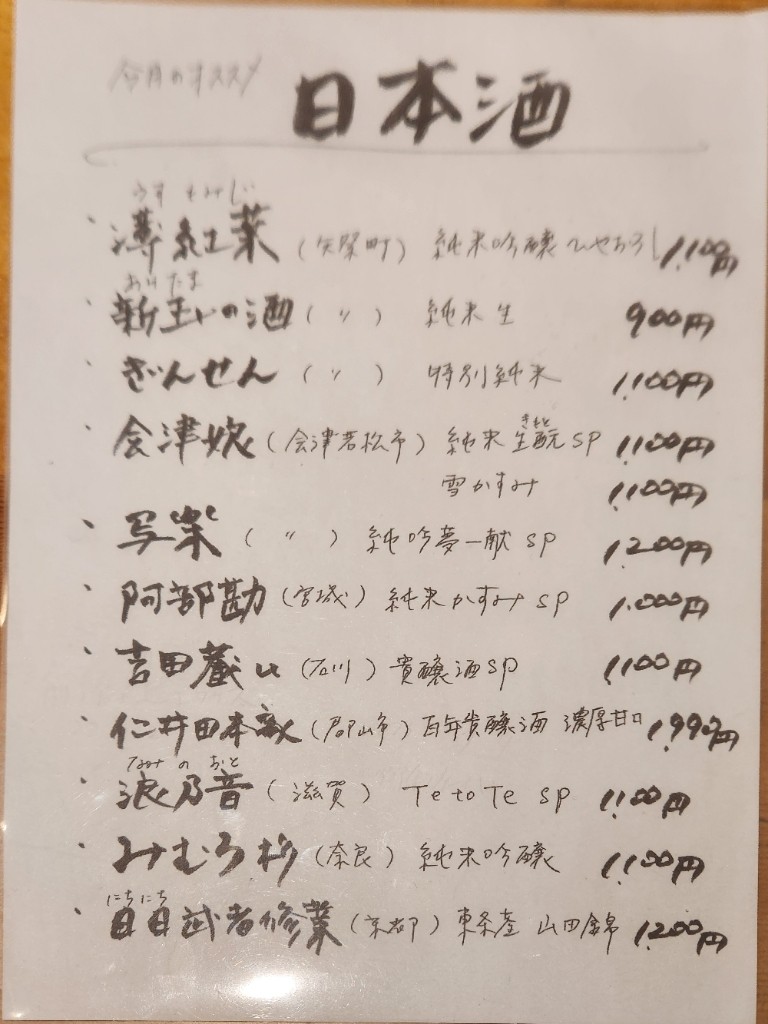 今月のオススメ
日本酒
うすもみじ
・薄紅葉（矢祭町）純米吟醸ひやおろし 1,100円
あらたま
・新玉いの酒（〃）純米生 900円
・ぎんせん（〃）特別純米 1,100円
きもと
・会津娘（会津若松市）純米生酛SP 1,100円
雪かすみ 1,100円
・写楽（〃）純吟夢一献 SP 1,200円
・阿部勘（宮城）純米かすみ SP 1,000円
・吉田蔵u（石川）貴醸酒SP 1,100円
・仁井田本家（郡山市）百年貴醸酒 濃厚甘口 1,990円
なみのおと
・浪乃音（滋賀）Te to Te SP 1,100円
・みむろ杉（奈良）純米吟醸 1,100円
にちにち
・日日武者修業（京都）東条産 山田錦 1,200円